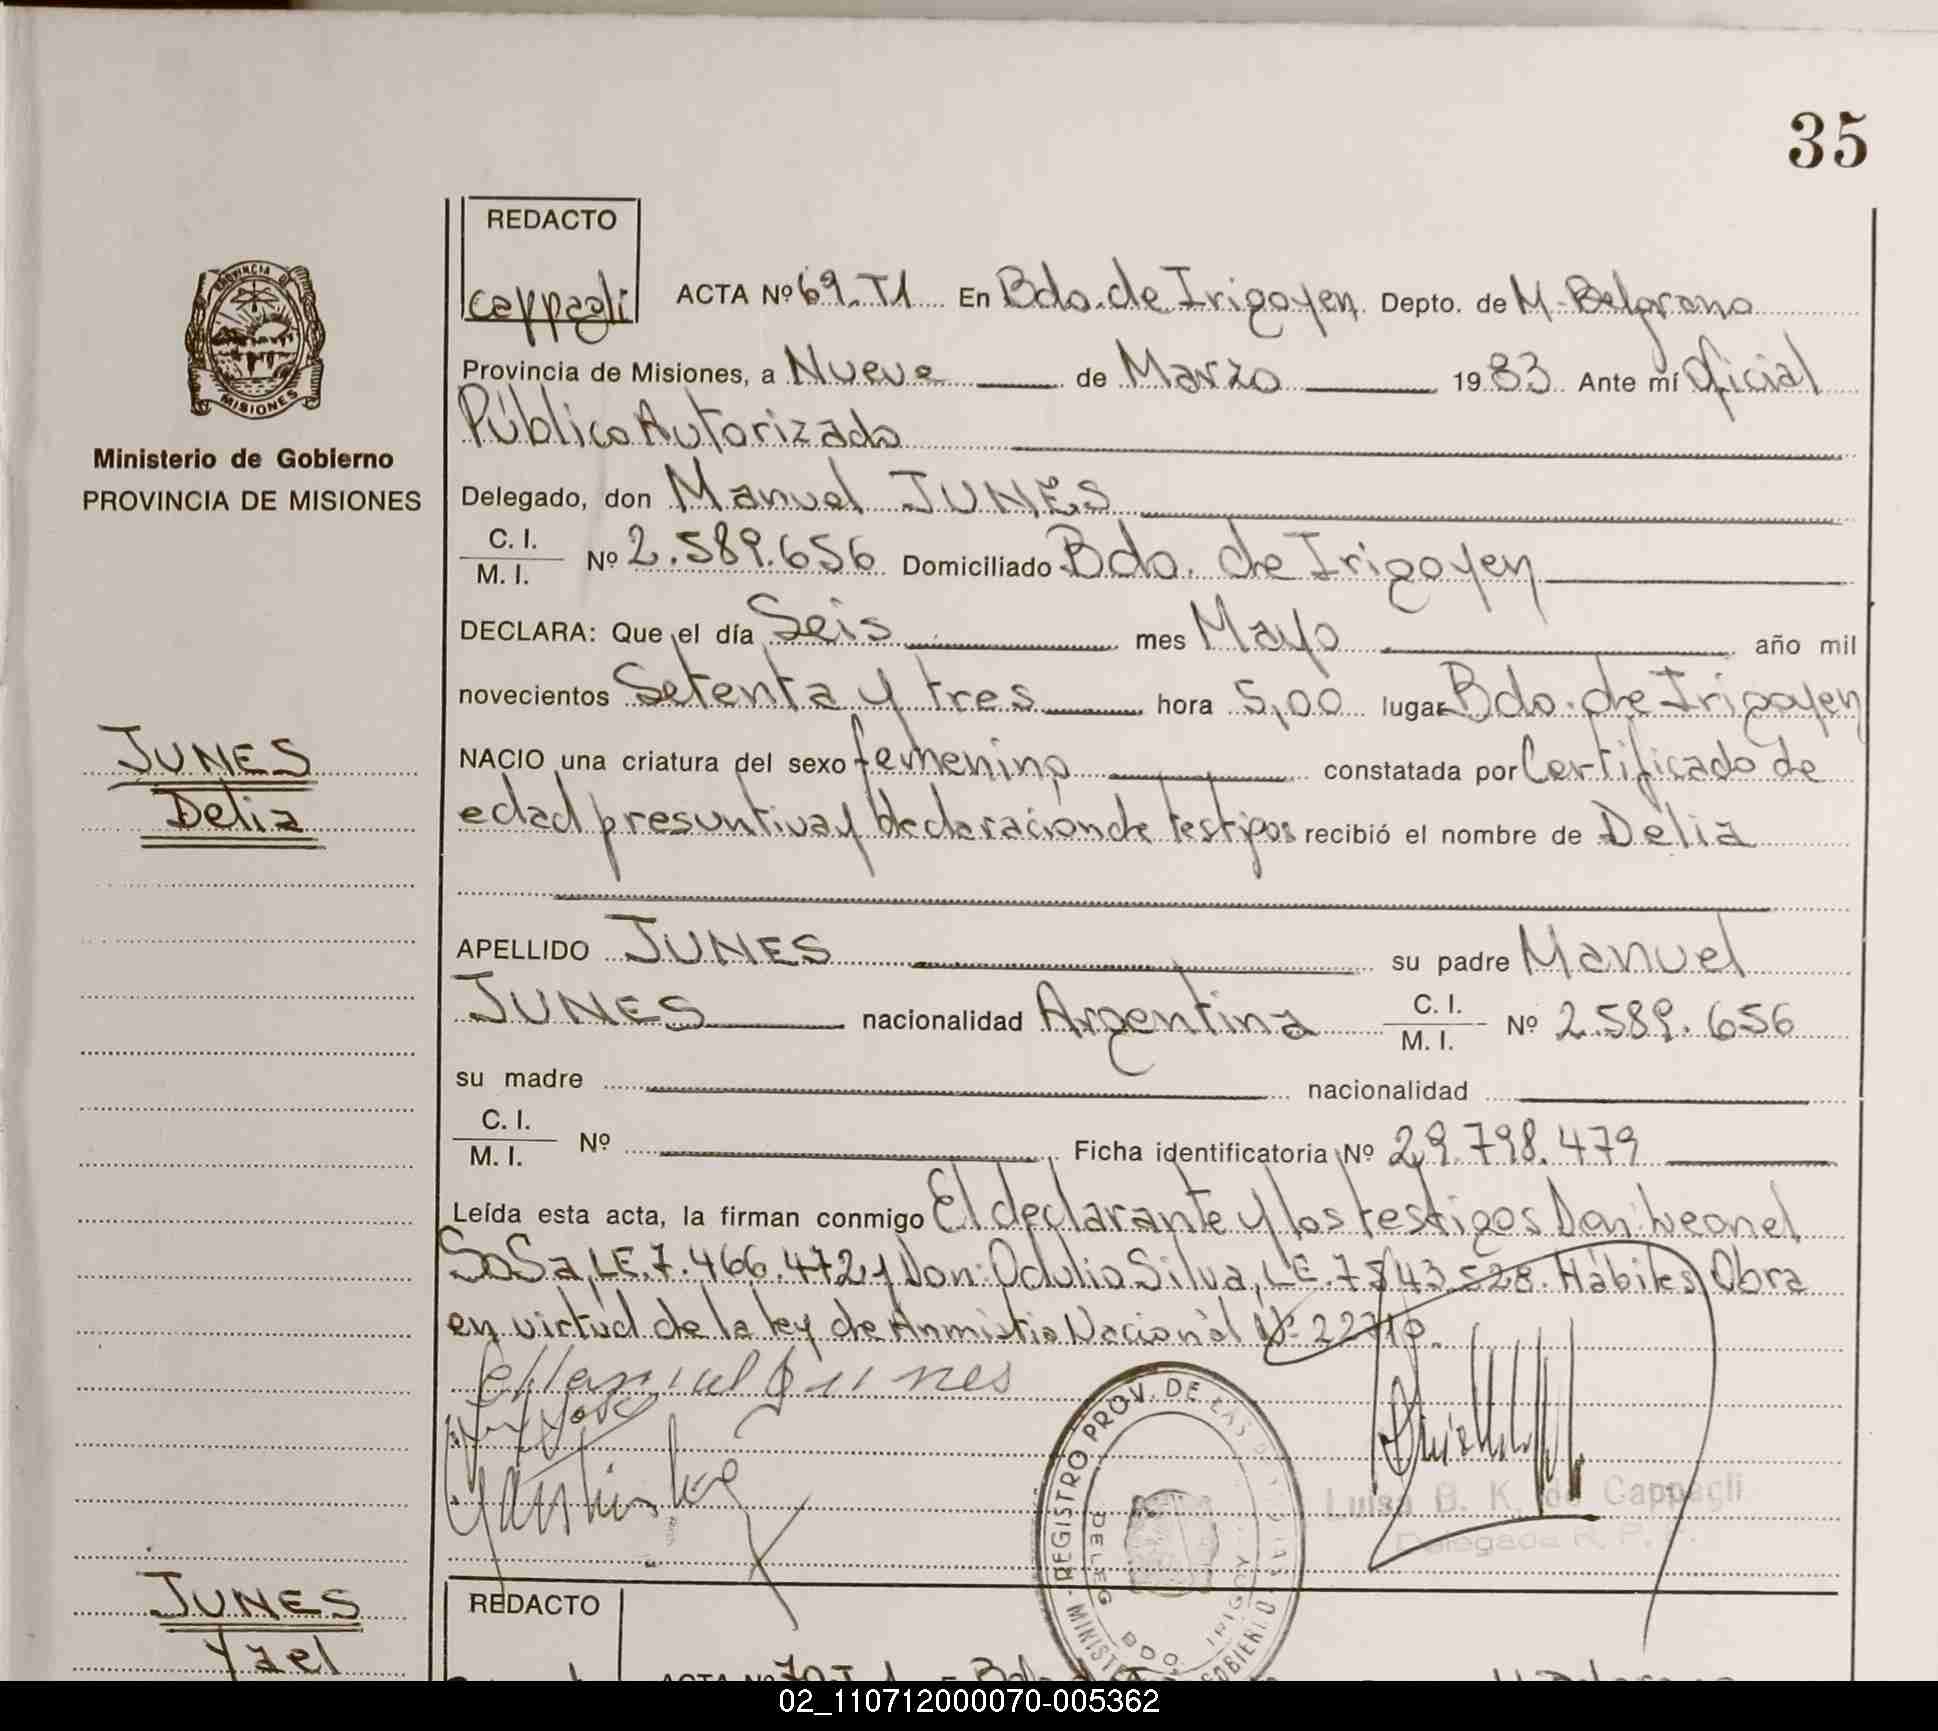 35
REDACTO
Cappagli
ACTA Nº 69. T1 En Bdo. de Irigoyen. Depto. de M. Belgrano
PROVINCIA DE
MISIONES
Provincia de Misiones, a Nueve de Marzo 1983 Ante mí Oficial
Público Autorizado
Ministerio de Gobierno
PROVINCIA DE MISIONES
Delegado, don Manuel JUNES
C. I.
M. I. Nº 2.589.656 Domiciliado Bdo. de Irigoyen
DECLARA: Que el día Seis mes Mayo año mil
novecientos Setenta y tres hora 5,00 lugar Bdo. de Irigoyen
JUNES
Delia
NACIO una criatura del sexo femenino constatada por Certificado de
edad presuntiva y declaracion de testigos recibió el nombre de Delia
APELLIDO JUNES su padre Manuel
JUNES nacionalidad Argentina C. I.
M. I. Nº 2.589.656
su madre nacionalidad
C. I.
M. I. Nº Ficha identificatoria Nº 29.798.479
Leída esta acta, la firman conmigo El declarante y los testigos Don: Leonel
Sosa, LE. 7.466.472 y Don: Odulio Silva, LE. 7543.528. Hábiles, Obra
en virtud de la ley de Anmistia Nacional Nº
Manuel Junes
REGISTRO PROV. DE LAS
DELEG BDO. IRIGOY
Luisa B. K. de Cappagli
Delegada R. P. P.
JUNES
Yael
REDACTO
ACTA Nº 70. T1
02_110712000070-005362